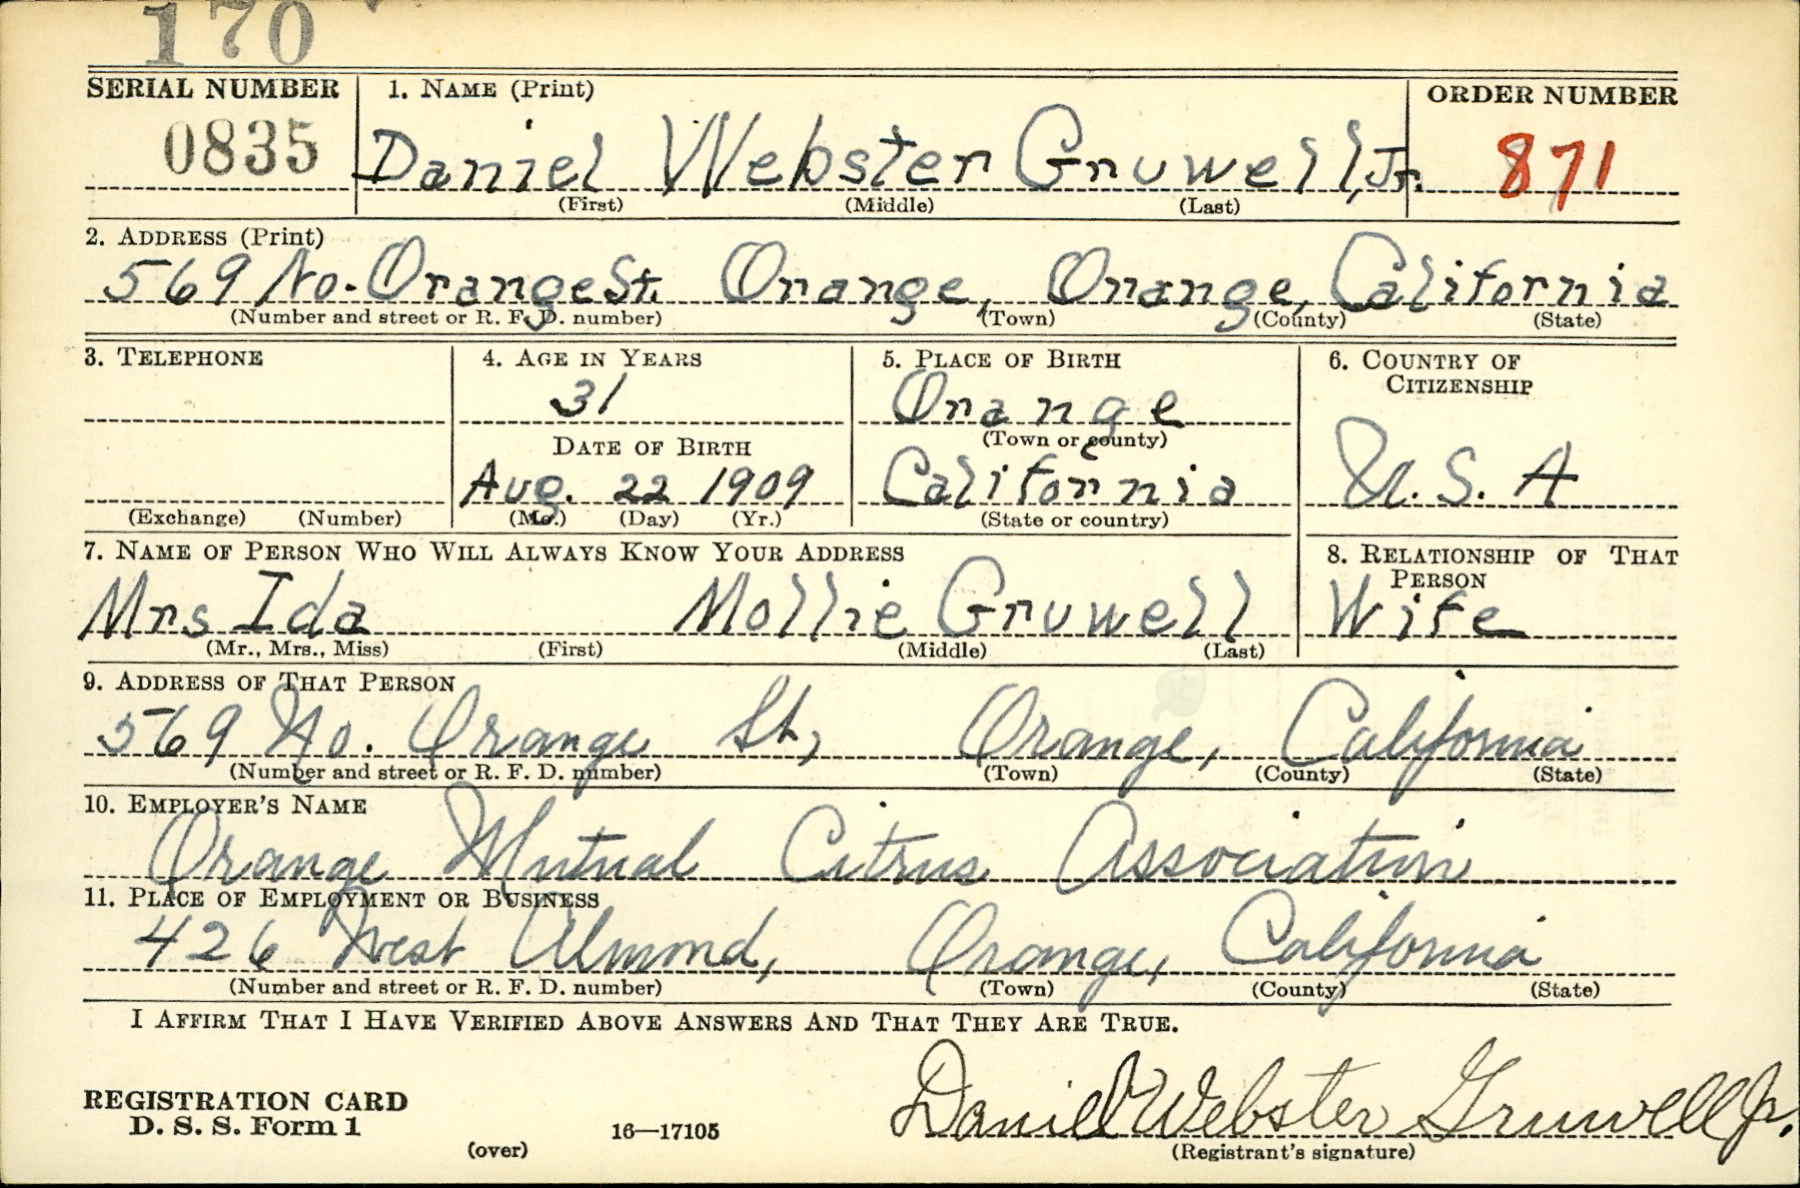 170
SERIAL NUMBER
1. NAME (Print)
ORDER NUMBER
0835
Daniel Webster Gruwell, Jr.
871
(First) (Middle) (Last)
2. ADDRESS (Print)
569 No. Orange St. Orange, Orange, California
(Number and street or R. F. D. number) (Town) (County) (State)
3. TELEPHONE
4. AGE IN YEARS
5. PLACE OF BIRTH
6. COUNTRY OF
CITIZENSHIP
31
Orange
DATE OF BIRTH
(Town or county)
Aug. 22 1909
California
U.S.A
(Exchange) (Number)
(Mo.) (Day) (Yr.)
(State or country)
7. NAME OF PERSON WHO WILL ALWAYS KNOW YOUR ADDRESS
8. RELATIONSHIP OF THAT
PERSON
Mrs Ida Mollie Gruwell
Wife
(Mr., Mrs., Miss) (First) (Middle) (Last)
9. ADDRESS OF THAT PERSON
569 No. Orange St, Orange, California
(Number and street or R. F. D. number) (Town) (County) (State)
10. EMPLOYER'S NAME
Orange Mutual Citrus Association
11. PLACE OF EMPLOYMENT OR BUSINESS
426 West Almond, Orange, California
(Number and street or R. F. D. number) (Town) (County) (State)
I AFFIRM THAT I HAVE VERIFIED ABOVE ANSWERS AND THAT THEY ARE TRUE.
Daniel Webster Gruwell Jr.
REGISTRATION CARD
D. S. S. Form 1
(over)
16—17105
(Registrant's signature)